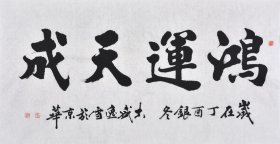 鴻運天成
歲在丁酉銀冬 大成逸雪於京華